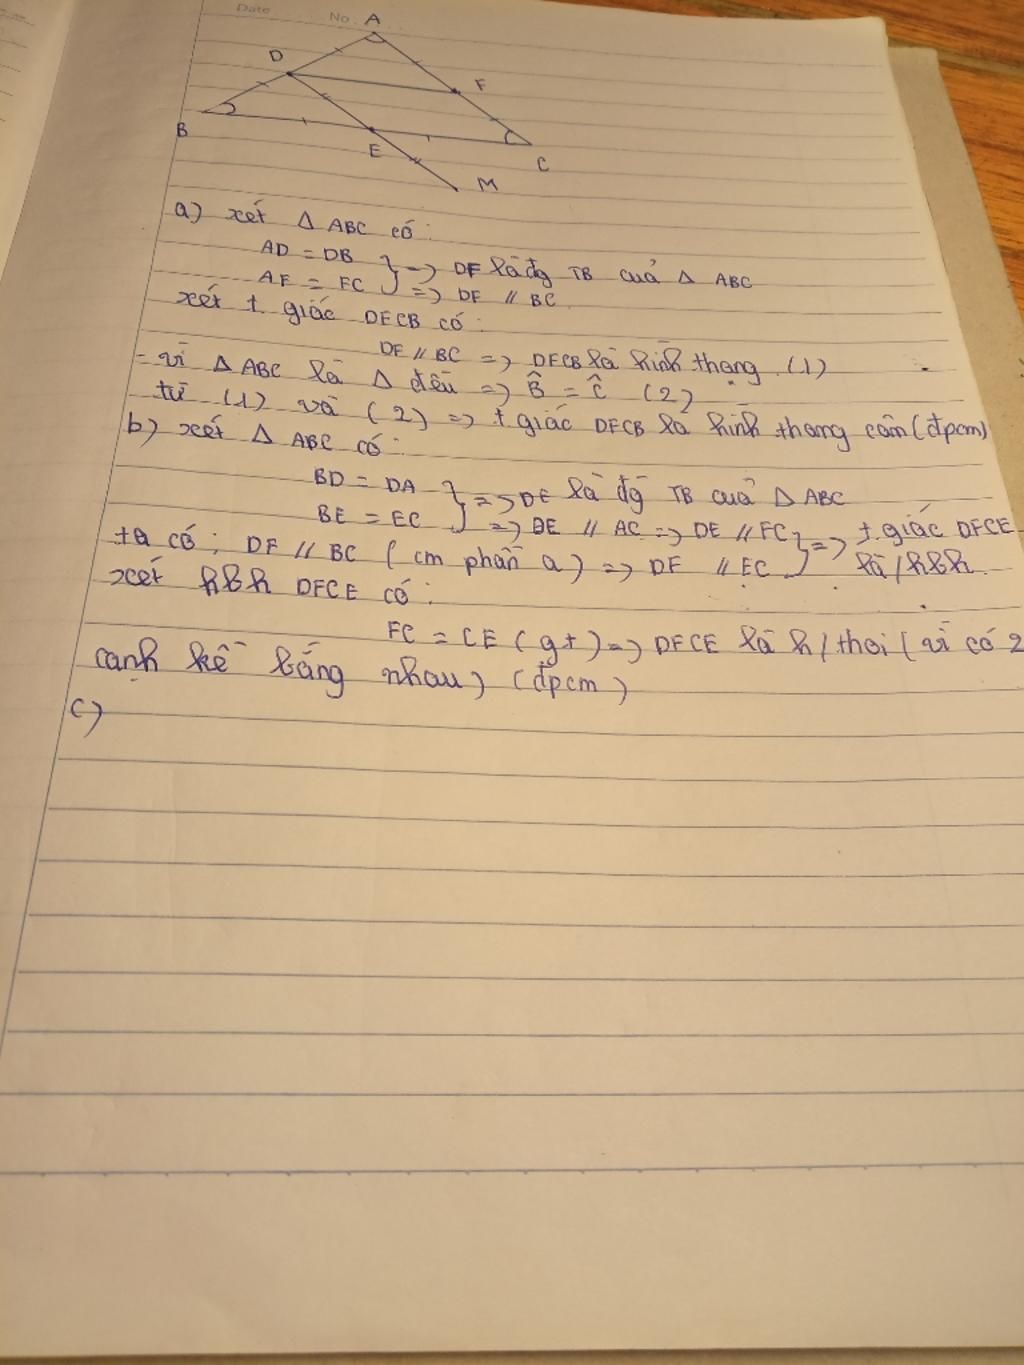 Date No.
A
D
F
B
E
C
M
a) xét Δ ABC có:
AD = DB } => DF là đg TB cuả Δ ABC
AF = FC } => DF // BC
xét t. giác DFCB có:
DF // BC => DFCB là hình thang (1)
- vì Δ ABC là Δ đều => B̂ = Ĉ (2)
từ (1) và (2) => t giác DFCB là hình thang cân (đpcm)
b) xét Δ ABC có:
BD = DA } => DE là đg TB cuả Δ ABC
BE = EC } => DE // AC => DE // FC } => t. giác DFCE
ta có: DF // BC (cm phần a) => DF // EC } là /hbh
xét hbh DFCE có:
FC = CE (gt) => DFCE là h/thoi (vì có 2
cạnh kề bằng nhau) (đpcm)
c)